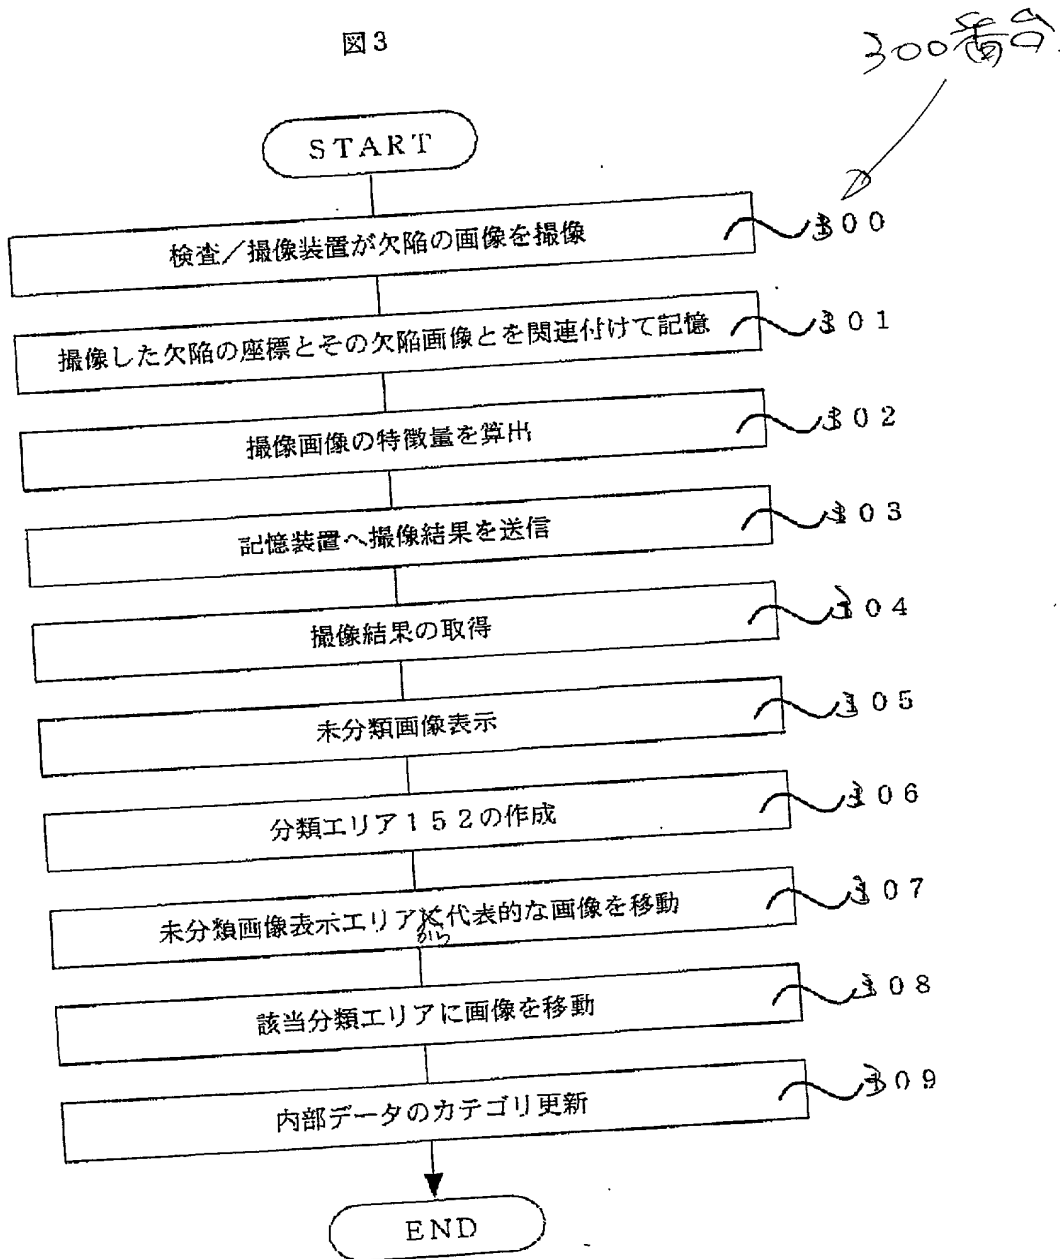 図3
300番台
START
検査／撮像装置が欠陥の画像を撮像 300
撮像した欠陥の座標とその欠陥画像とを関連付けて記憶 301
撮像画像の特徴量を算出 302
記憶装置へ撮像結果を送信 303
撮像結果の取得 304
未分類画像表示 305
分類エリア１５２の作成 306
未分類画像表示エリアから代表的な画像を移動 307
該当分類エリアに画像を移動 308
内部データのカテゴリ更新 309
END